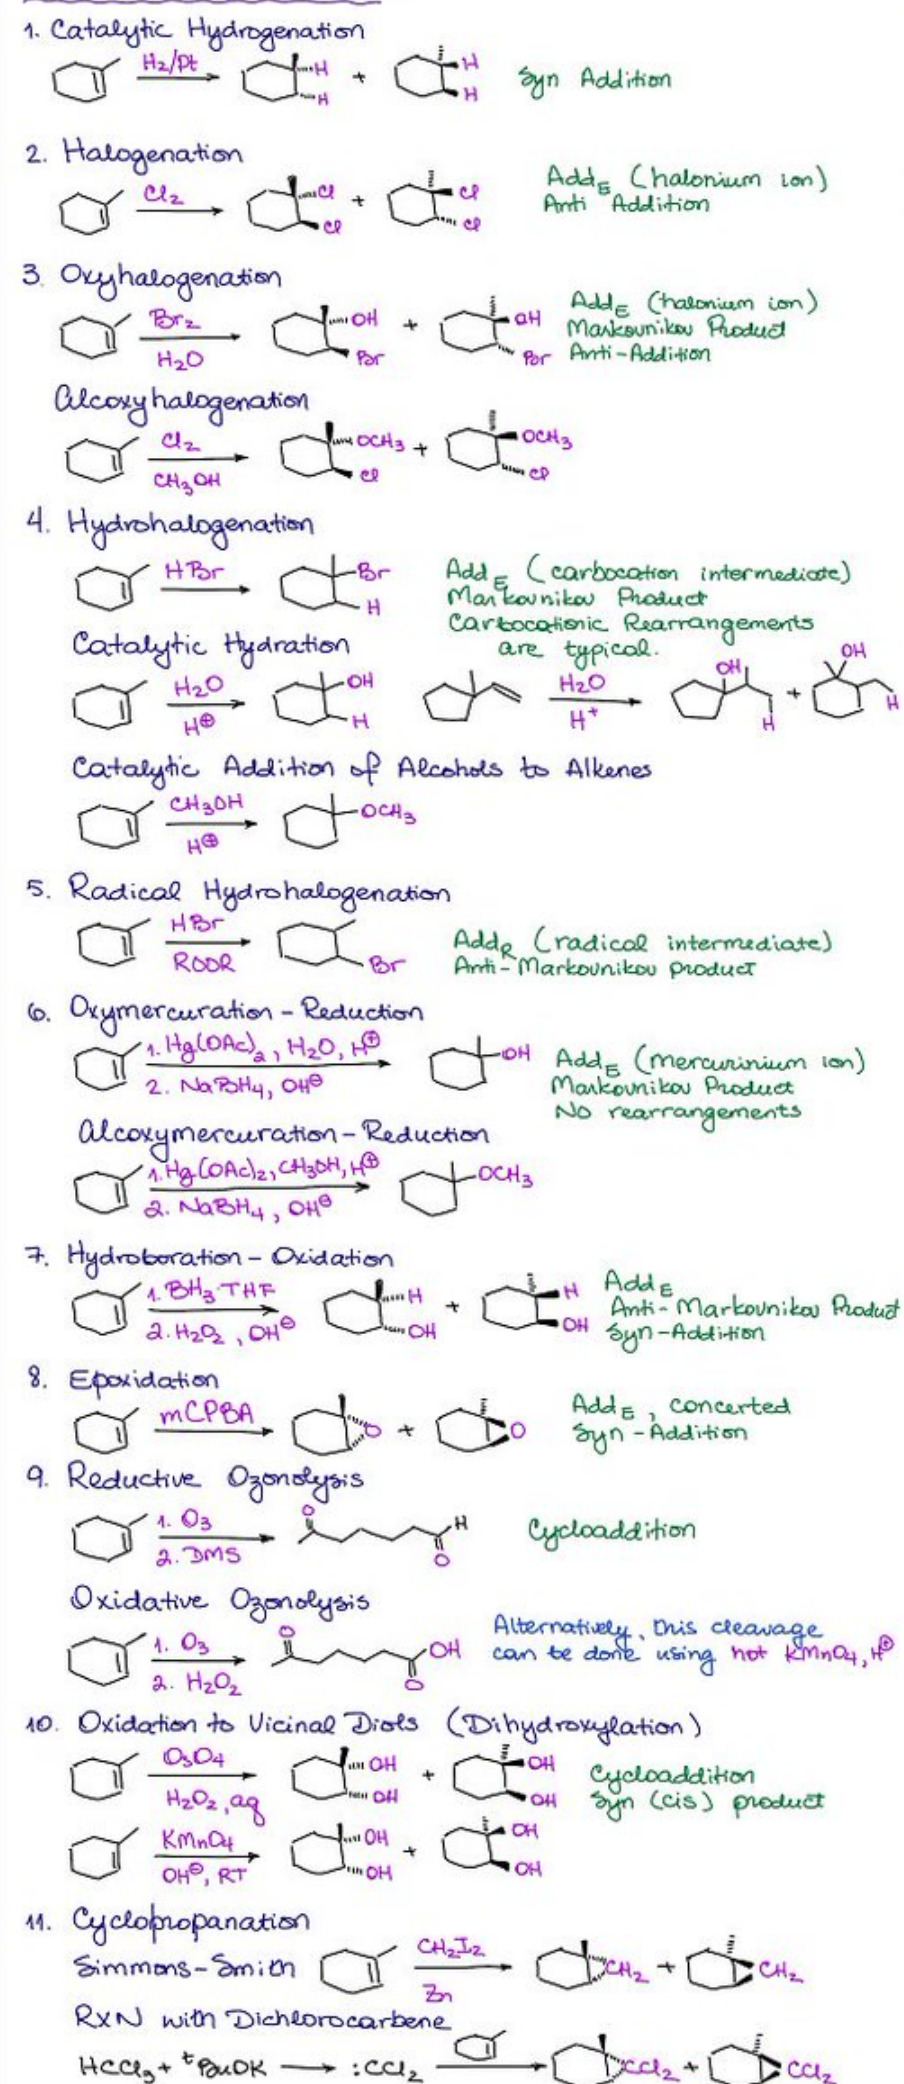 1. Catalytic Hydrogenation
H₂/Pt
H
H
+
H
H
Syn Addition
2. Halogenation
Cl₂
Cl
Cl
+
Cl
Cl
Add_E (halonium ion)
Anti Addition
3. Oxyhalogenation
Br₂
H₂O
OH
Br
+
OH
Br
Add_E (halonium ion)
Markovnikov Product
Anti-Addition
Alcoxyhalogenation
Cl₂
CH₃OH
OCH₃
Cl
+
OCH₃
Cl
4. Hydrohalogenation
HBr
Br
H
Add_E (carbocation intermediate)
Markovnikov Product
Carbocationic Rearrangements
are typical.
Catalytic Hydration
H₂O
H⊕
OH
H
H₂O
H⁺
OH
H
+
OH
H
Catalytic Addition of Alcohols to Alkenes
CH₃OH
H⊕
OCH₃
5. Radical Hydrohalogenation
HBr
ROOR
Br
Add_R (radical intermediate)
Anti-Markovnikov product
6. Oxymercuration-Reduction
1. Hg(OAc)₂, H₂O, H⊕
2. NaBH₄, OH⊖
OH
Add_E (mercurinium ion)
Markovnikov Product
No rearrangements
Alcoxymercuration-Reduction
1. Hg(OAc)₂, CH₃OH, H⊕
2. NaBH₄, OH⊖
OCH₃
7. Hydroboration-Oxidation
1. BH₃·THF
2. H₂O₂, OH⊖
H
OH
+
H
OH
Add_E
Anti-Markovnikov Product
Syn-Addition
8. Epoxidation
mCPBA
O
+
O
Add_E, concerted
Syn-Addition
9. Reductive Ozonolysis
1. O₃
2. DMS
O
H
O
Cycloaddition
Oxidative Ozonolysis
1. O₃
2. H₂O₂
O
OH
O
Alternatively, this cleavage
can be done using hot KMnO₄, H⊕
10. Oxidation to Vicinal Diols (Dihydroxylation)
OsO₄
H₂O₂, aq
OH
OH
+
OH
OH
Cycloaddition
Syn (cis) product
KMnO₄
OH⊖, RT
OH
OH
+
OH
OH
11. Cyclopropanation
Simmons-Smith
CH₂I₂
Zn
CH₂
+
CH₂
RXN with Dichlorocarbene
HCCl₃ + ᵗBuOK
:CCl₂
CCl₂
+
CCl₂